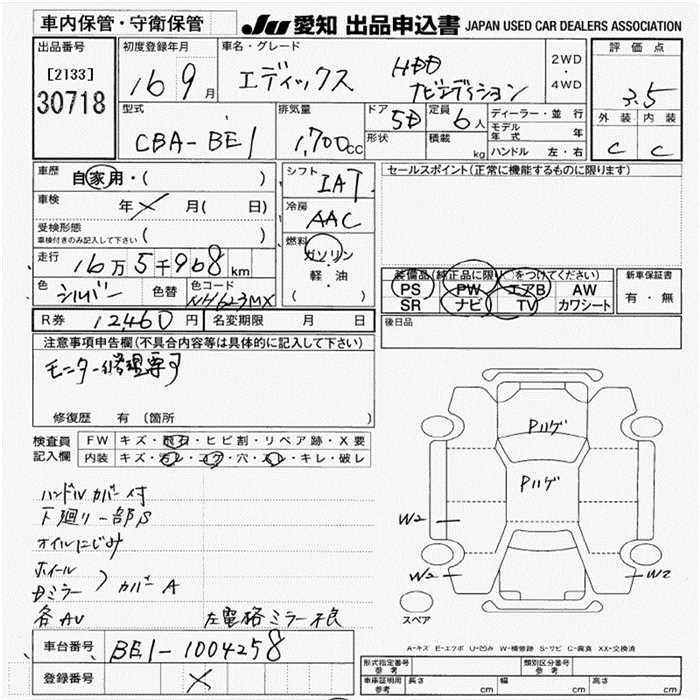 車内保管・守衛保管
JU 愛知 出品申込書 JAPAN USED CAR DEALERS ASSOCIATION
出品番号 初度登録年月 車名・グレード 評価点
[2133]
30718
16 9月 エディックス HDD ナビエディション 2WD・4WD 3.5
型式 排気量 ドア 定員 ディーラー・並行 外装 内装
CBA-BE1 1,700cc 5D 6人 モデル年式 年 C C
形状 積載 kg ハンドル 左・右
車歴 自家用・( ) シフト IAT セールスポイント(正常に機能するものに限ります)
車検 年 X 月( 日) 冷房 AAC
受検形態 ( )
車検付きのみ記入して下さい
燃料 ガソリン・軽・油 ( )
走行 16万5千968km
装備品(純正品に限り○をつけてください) 新車保証書
PS PW エアB AW 有・無
SR ナビ TV カワシート
色 シルバー 色替 色コード NH623MX
R券 12,460円 名変期限 月 日 後日品
注意事項申告欄(不具合内容等は具体的に記入して下さい)
修復歴 有 (箇所 )
検査員記入欄 FW キズ・飛石・ヒビ割・リペア跡・X要
内装 キズ・汚レ・コゲ・穴・スレ・キレ・破レ
Pハゲ
Pハゲ
ハンドルカバー付
下廻り一部S
オイルにじみ
W2
ホイール
Dミラー ) カバー A
W2 W2
各AU 左電格ミラー不良
スペア
A-キズ E-エクボ U-凹み W-補修跡 S-サビ C-腐食 XX-交換済
車台番号 BE1-1004258
登録番号 X
形式指定番号 参考 類別区分番号 参考
車庫証明用 参考 長さ cm 幅 cm 高さ cm